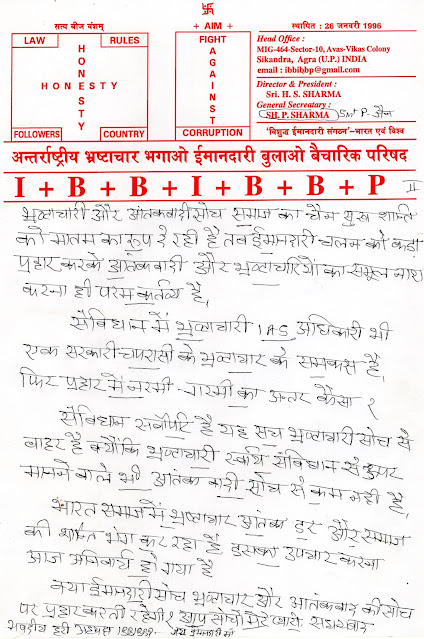 सत्य बीज वंशम्
卐
+ AIM +
स्थापित : 26 जनवरी 1996
LAW
RULES
HONESTY
HONESTY
FOLLOWERS
COUNTRY
FIGHT
AGAINST
CORRUPTION
Head Office :
MIG-464-Sector-10, Avas-Vikas Colony
Sikandra, Agra (U.P.) INDIA
email : ibbibbp@gmail.com
Director & President :
Sri. H. S. SHARMA
General Secreatary :
SH. P. SHARMA Smt P. जैन
'विशुद्ध ईमानदारी संगठन'-भारत एवं विश्व
अन्तर्राष्ट्रीय भ्रष्टाचार भगाओ ईमानदारी बुलाओ बैचारिक परिषद
I + B + B + I + B + B + P II
भ्रष्टाचारी और आंतकवादी सोच समाज का चैन सुख शान्ति
को मातम का रूप दे रही है तब ईमानदारी चलन को कड़ा
प्रहार करके आंतकवादी और भ्रष्टाचारियों का समूल नाश
करना ही परम कर्तव्य है,
संविधान में भ्रष्टाचारी IAS अधिकारी भी
एक सरकारी चपरासी के भ्रष्टाचार के समकक्ष है,
फिर प्रहार में नरमी-गरमी का अन्तर कैसा ?
संविधान सर्वोपरि है यह सच भ्रष्टाचारी सोच से
बाहर है क्योंकि भ्रष्टाचारी स्वार्थ संविधान से ऊपर
मानने वाले भी आंतकवादी सोच से कम नही है,
भारत समाज में भ्रष्टाचार आंतक डर और समाज
की शान्ति भंग कर रहा है इसका उपचार करना
आज अनिवार्य हो गया है
क्या ईमानदारी सोच भ्रष्टाचार और आंतकवाद की सोच
पर प्रहार करती रहेगी ? आप सोचो मेरे प्यारे
भवदीय हरी जय ईमानदारी